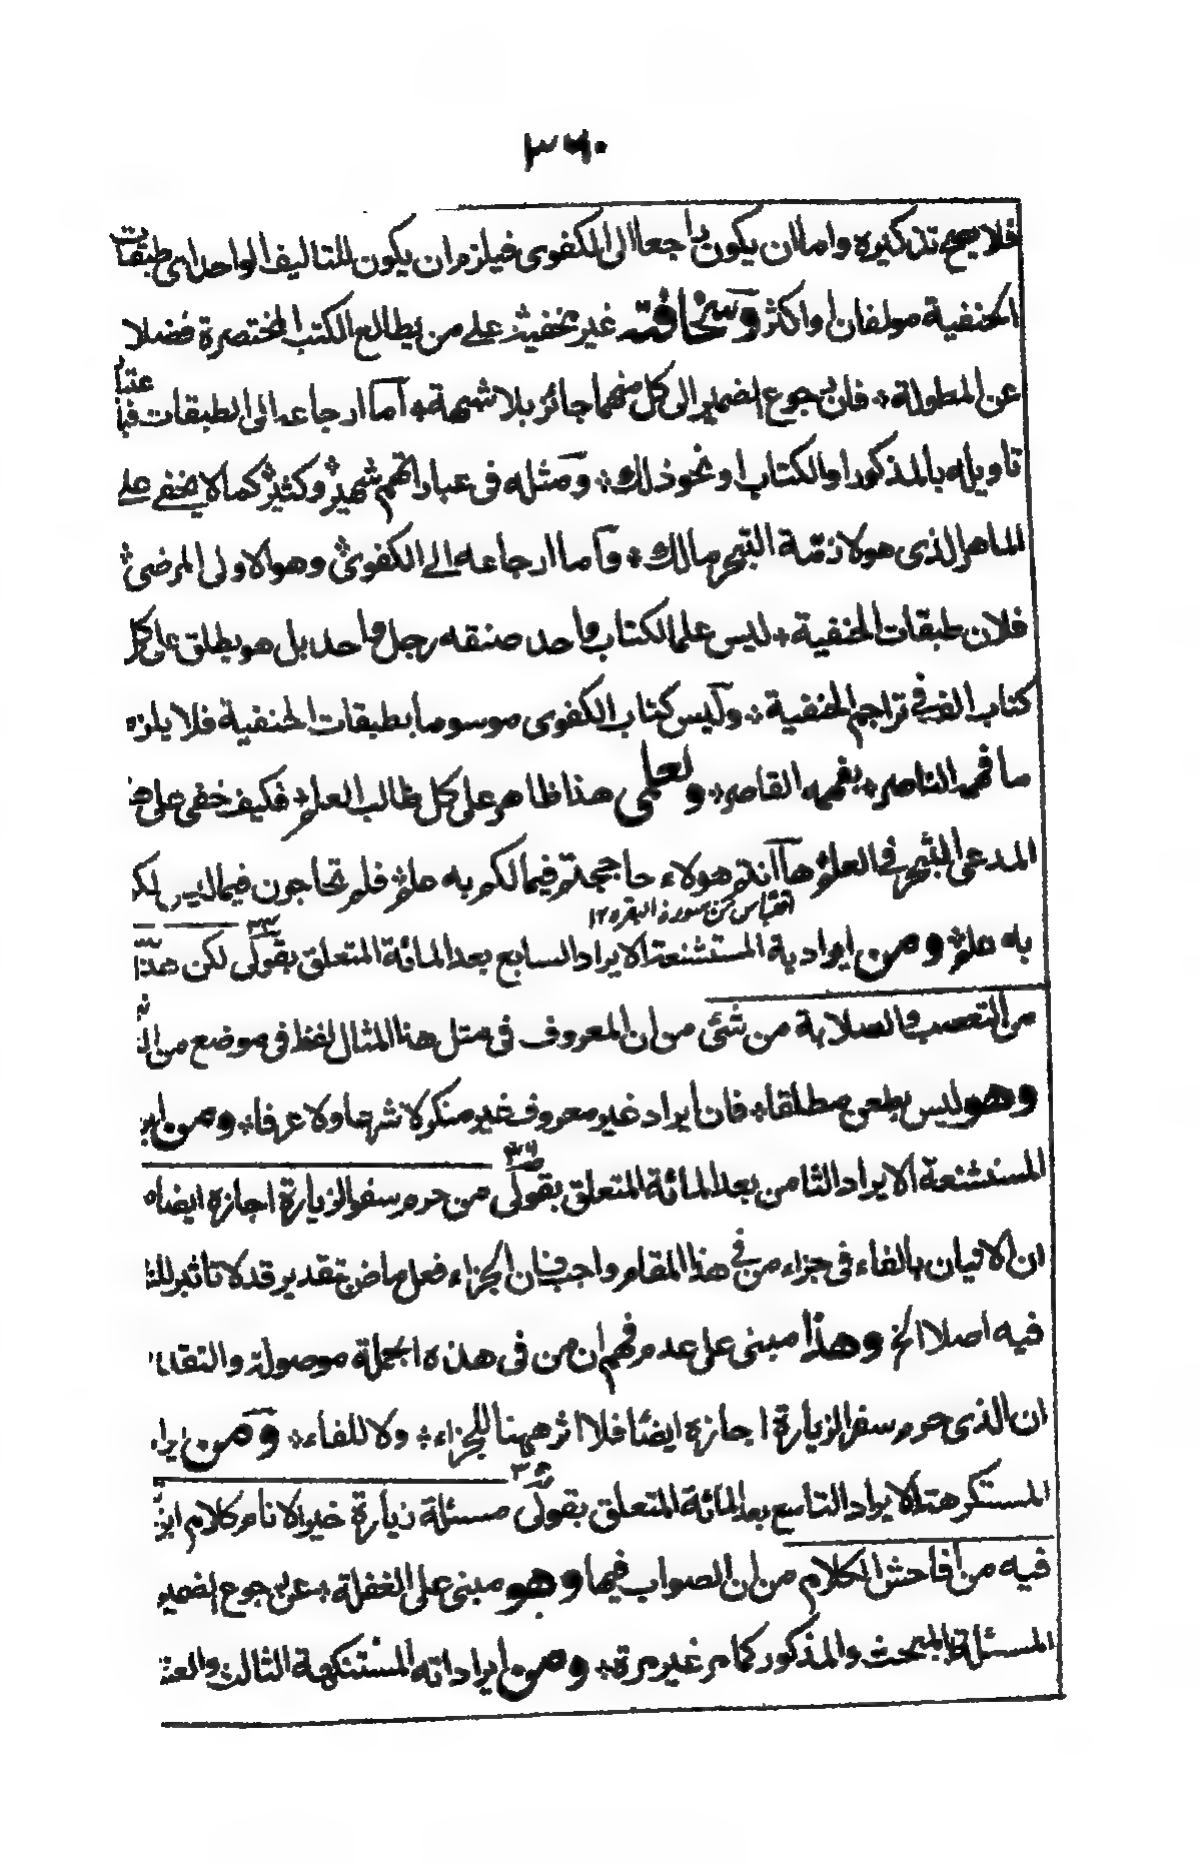 ٣٦٠
فلا يصح تذكيره واما ان يكون راجعا الى الكفوى فيلزم ان يكون للتاليف الواحد اى طبقات
الحنفية مولفان او اكثر وسخافته غير خفية على من يطالع الكتب المختصرة فضلا
عن المطولة * فان رجوع الضمير الى كل منهما جائز بلا شبهة * اما ارجاعه الى الطبقات فباعتبار
تاويله بالمذكور او الكتاب او نحو ذلك * ومثله فى عباراتهم شهير وكثير كما لا يخفى على
الماهر الذى هو لازمة التبحر مالك * واما ارجاعه الى الكفوى وهو الاولى المرضى
فلان طبقات الحنفية * ليس علما لكتاب واحد صنفه رجل واحد بل هو يطلق على كل
كتاب الف فى تراجم الحنفية * وليس كتاب الكفوى موسوما بطبقات الحنفية فلا يلزم
ما فهمه الناصر * بفهمه القاصر * ولعلمى هذا ظاهر على كل طالب العلم * فكيف خفى على
المدعى التبحر فى العلم ها انتم هولاء حاججتم فيما لكم به علم فلم تحاجون فيما ليس لكم
اقتباس من سورة البقره ١٢
به علم ومن ايراداته المستشنعة الايراد السابع بعد المائة المتعلق بقولى لكن هذا
من التعصب والصلابة من شئى من ان المعروف فى مثل هذا المثال لفظ فى موضع من
وهو ليس بطعن مطلقا * فان ايراد غير معروف غير منكر لا شرعا ولا عرفا * ومن
المستشنعة الايراد الثامن بعد المائة المتعلق بقولى من حرم سفر الزيارة اجازه ايضا
ان الاتيان بالفاء فى جزاء من فى هذا المقام واجب فان الجزاء فعل ماض بتقدير قد لا تاثير
فيه اصلا الخ وهذا مبنى على عدم فهم ان من فى هذه الجملة موصولة والتقدير
ان الذى حرم سفر الزيارة اجازه ايضا فلا اثر ههنا للجزاء * ولا للفاء * ومن
المستكرهة الايراد التاسع بعد المائة المتعلق بقولى مسئلة زيارة خير الانام كلام
فيه من افاحش الكلام من ان الصواب فيها وهو مبنى على الغفلة * عن رجوع الضمير
المسئلة بالمبحث والمذكور كما مر غير مرة * ومن ايراداته المستنكهة الثالث